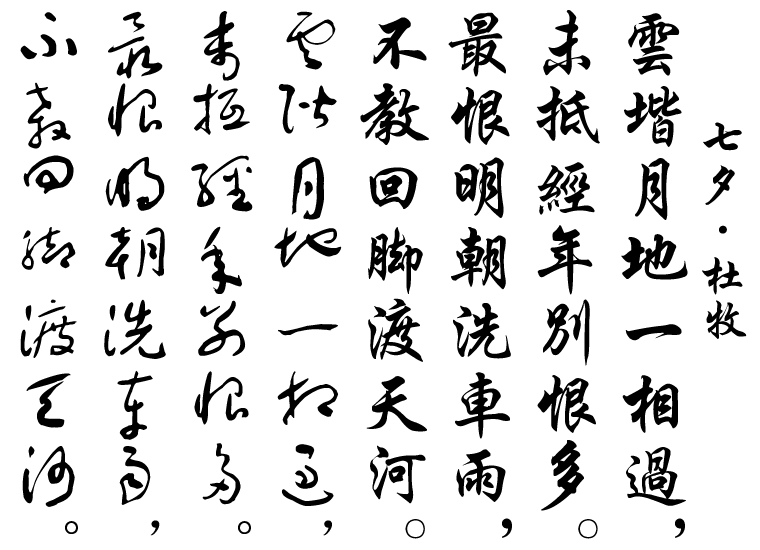 七夕·杜牧
雲堦月地一相過，
未抵經年別恨多。
最恨明朝洗車雨，
不教回脚渡天河。
雲階月地一相過，
未抵經年別恨多。
最恨明朝洗車雨，
不教回脚渡天河。